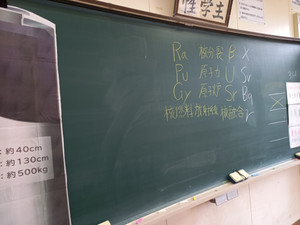 性学主
Ra 核分裂 β X
Pu 原子力 U Sv
Gy 原子炉 Sr Bq
核燃料 放射線 核融合 γ
：約40cm
：約130cm
：約500kg